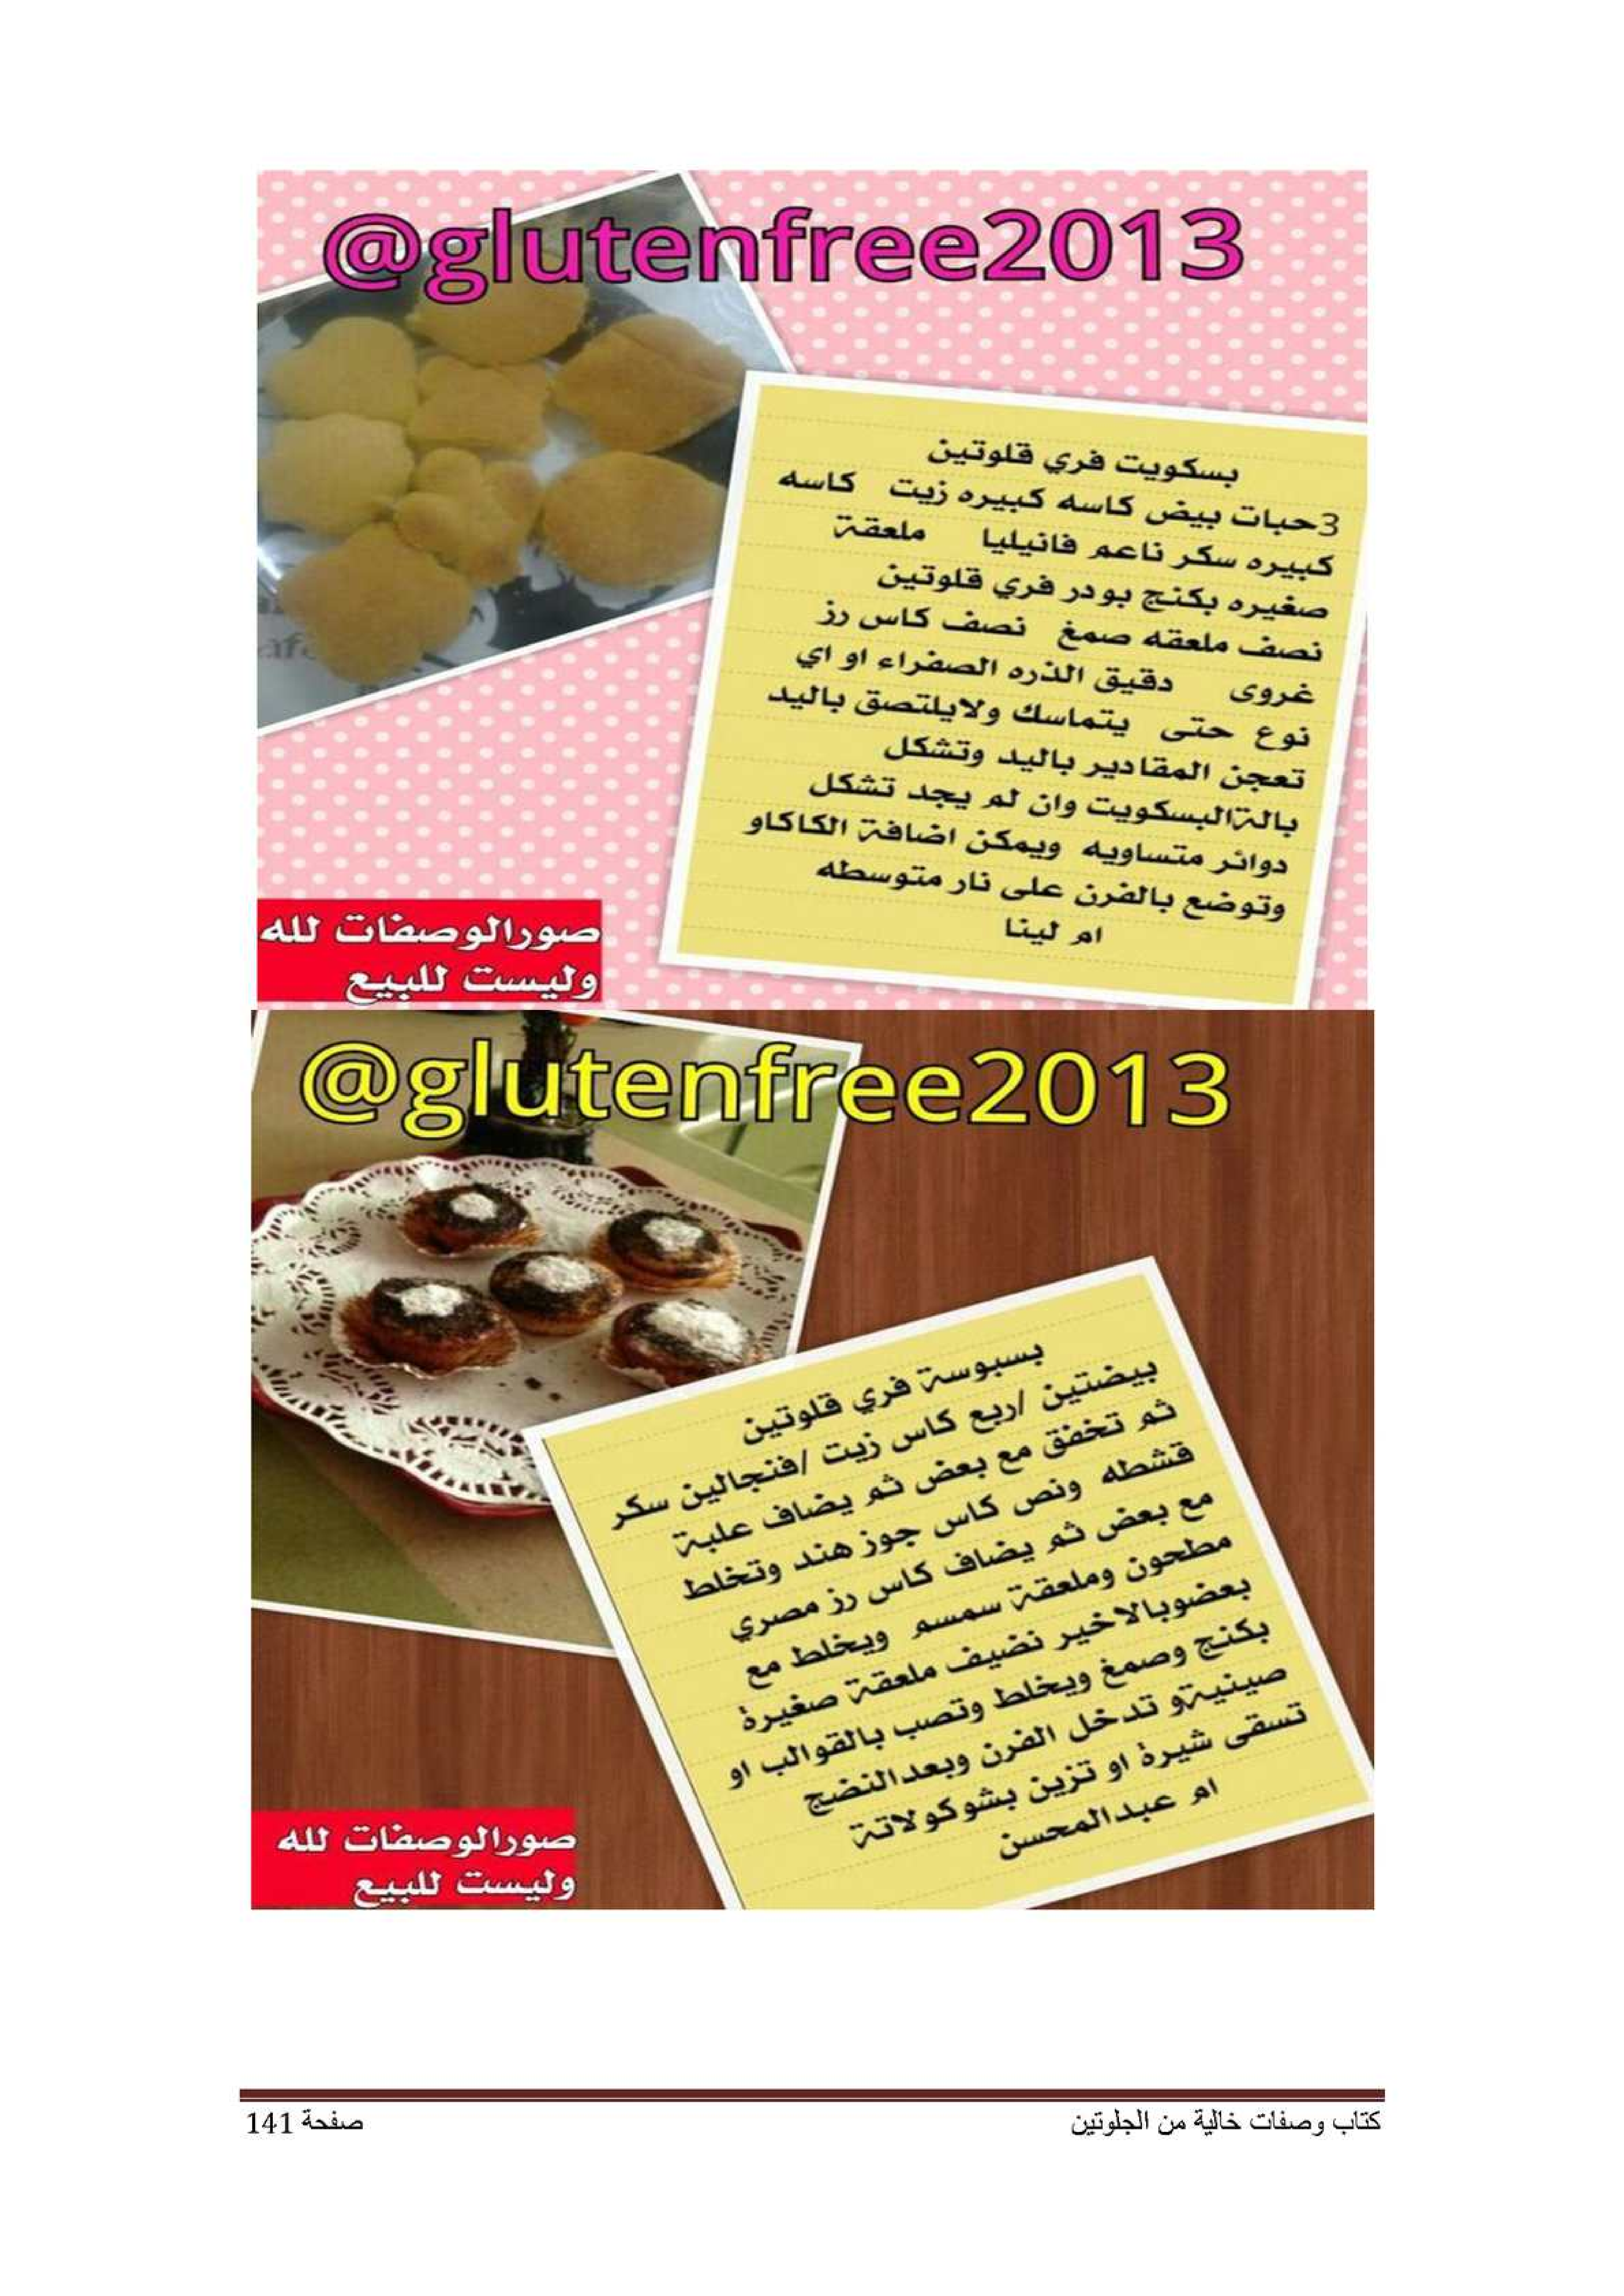 @glutenfree2013
بسكويت فري قلوتين
3حبات بيض كاسه كبيره زيت كاسه
كبيره سكر ناعم فانيليا ملعقة
صغيره بكنج بودر فري قلوتين
نصف ملعقه صمغ نصف كاس رز
غروى دقيق الذره الصفراء او اي
نوع حتى يتماسك ولايلتصق باليد
تعجن المقادير باليد وتشكل
بالةالبسكويت وان لم يجد تشكل
دوائر متساويه ويمكن اضافة الكاكاو
وتوضع بالفرن على نار متوسطه
ام لينا
صورالوصفات لله
وليست للبيع
@glutenfree2013
بسبوسة فري قلوتين
بيضتين /ربع كاس زيت /فنجالين سكر
ثم تخفق مع بعض ثم يضاف علبة
قشطه ونص كاس جوز هند وتخلط
مع بعض ثم يضاف كاس رز مصري
مطحون وملعقة سمسم ويخلط مع
بعضوبالاخير نضيف ملعقة صغيرة
بكنج وصمغ ويخلط وتصب بالقوالب او
صينيةو تدخل الفرن وبعدالنضج
تسقى شيرة او تزين بشوكولاتة
ام عبدالمحسن
صورالوصفات لله
وليست للبيع
كتاب وصفات خالية من الجلوتين
صفحة 141